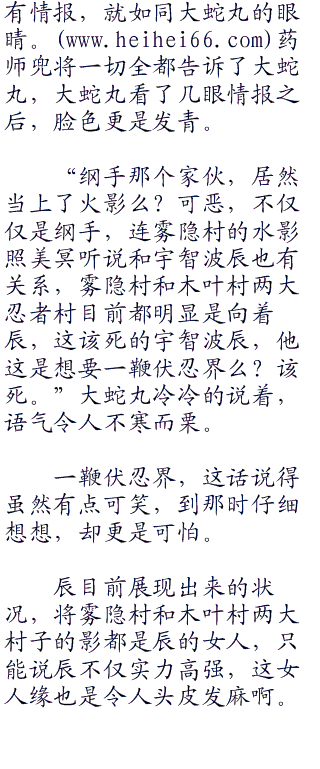 有情报，就如同大蛇丸的眼
睛。(www.heihei66.com)药
师兜将一切全都告诉了大蛇
丸，大蛇丸看了几眼情报之
后，脸色更是发青。
“纲手那个家伙，居然
当上了火影么？可恶，不仅
仅是纲手，连雾隐村的水影
照美冥听说和宇智波辰也有
关系，雾隐村和木叶村两大
忍者村目前都明显是向着
辰，这该死的宇智波辰，他
这是想要一鞭伏忍界么？该
死。”大蛇丸冷冷的说着，
语气令人不寒而栗。
一鞭伏忍界，这话说得
虽然有点可笑，到那时仔细
想想，却更是可怕。
辰目前展现出来的状
况，将雾隐村和木叶村两大
村子的影都是辰的女人，只
能说辰不仅实力高强，这女
人缘也是令人头皮发麻啊。